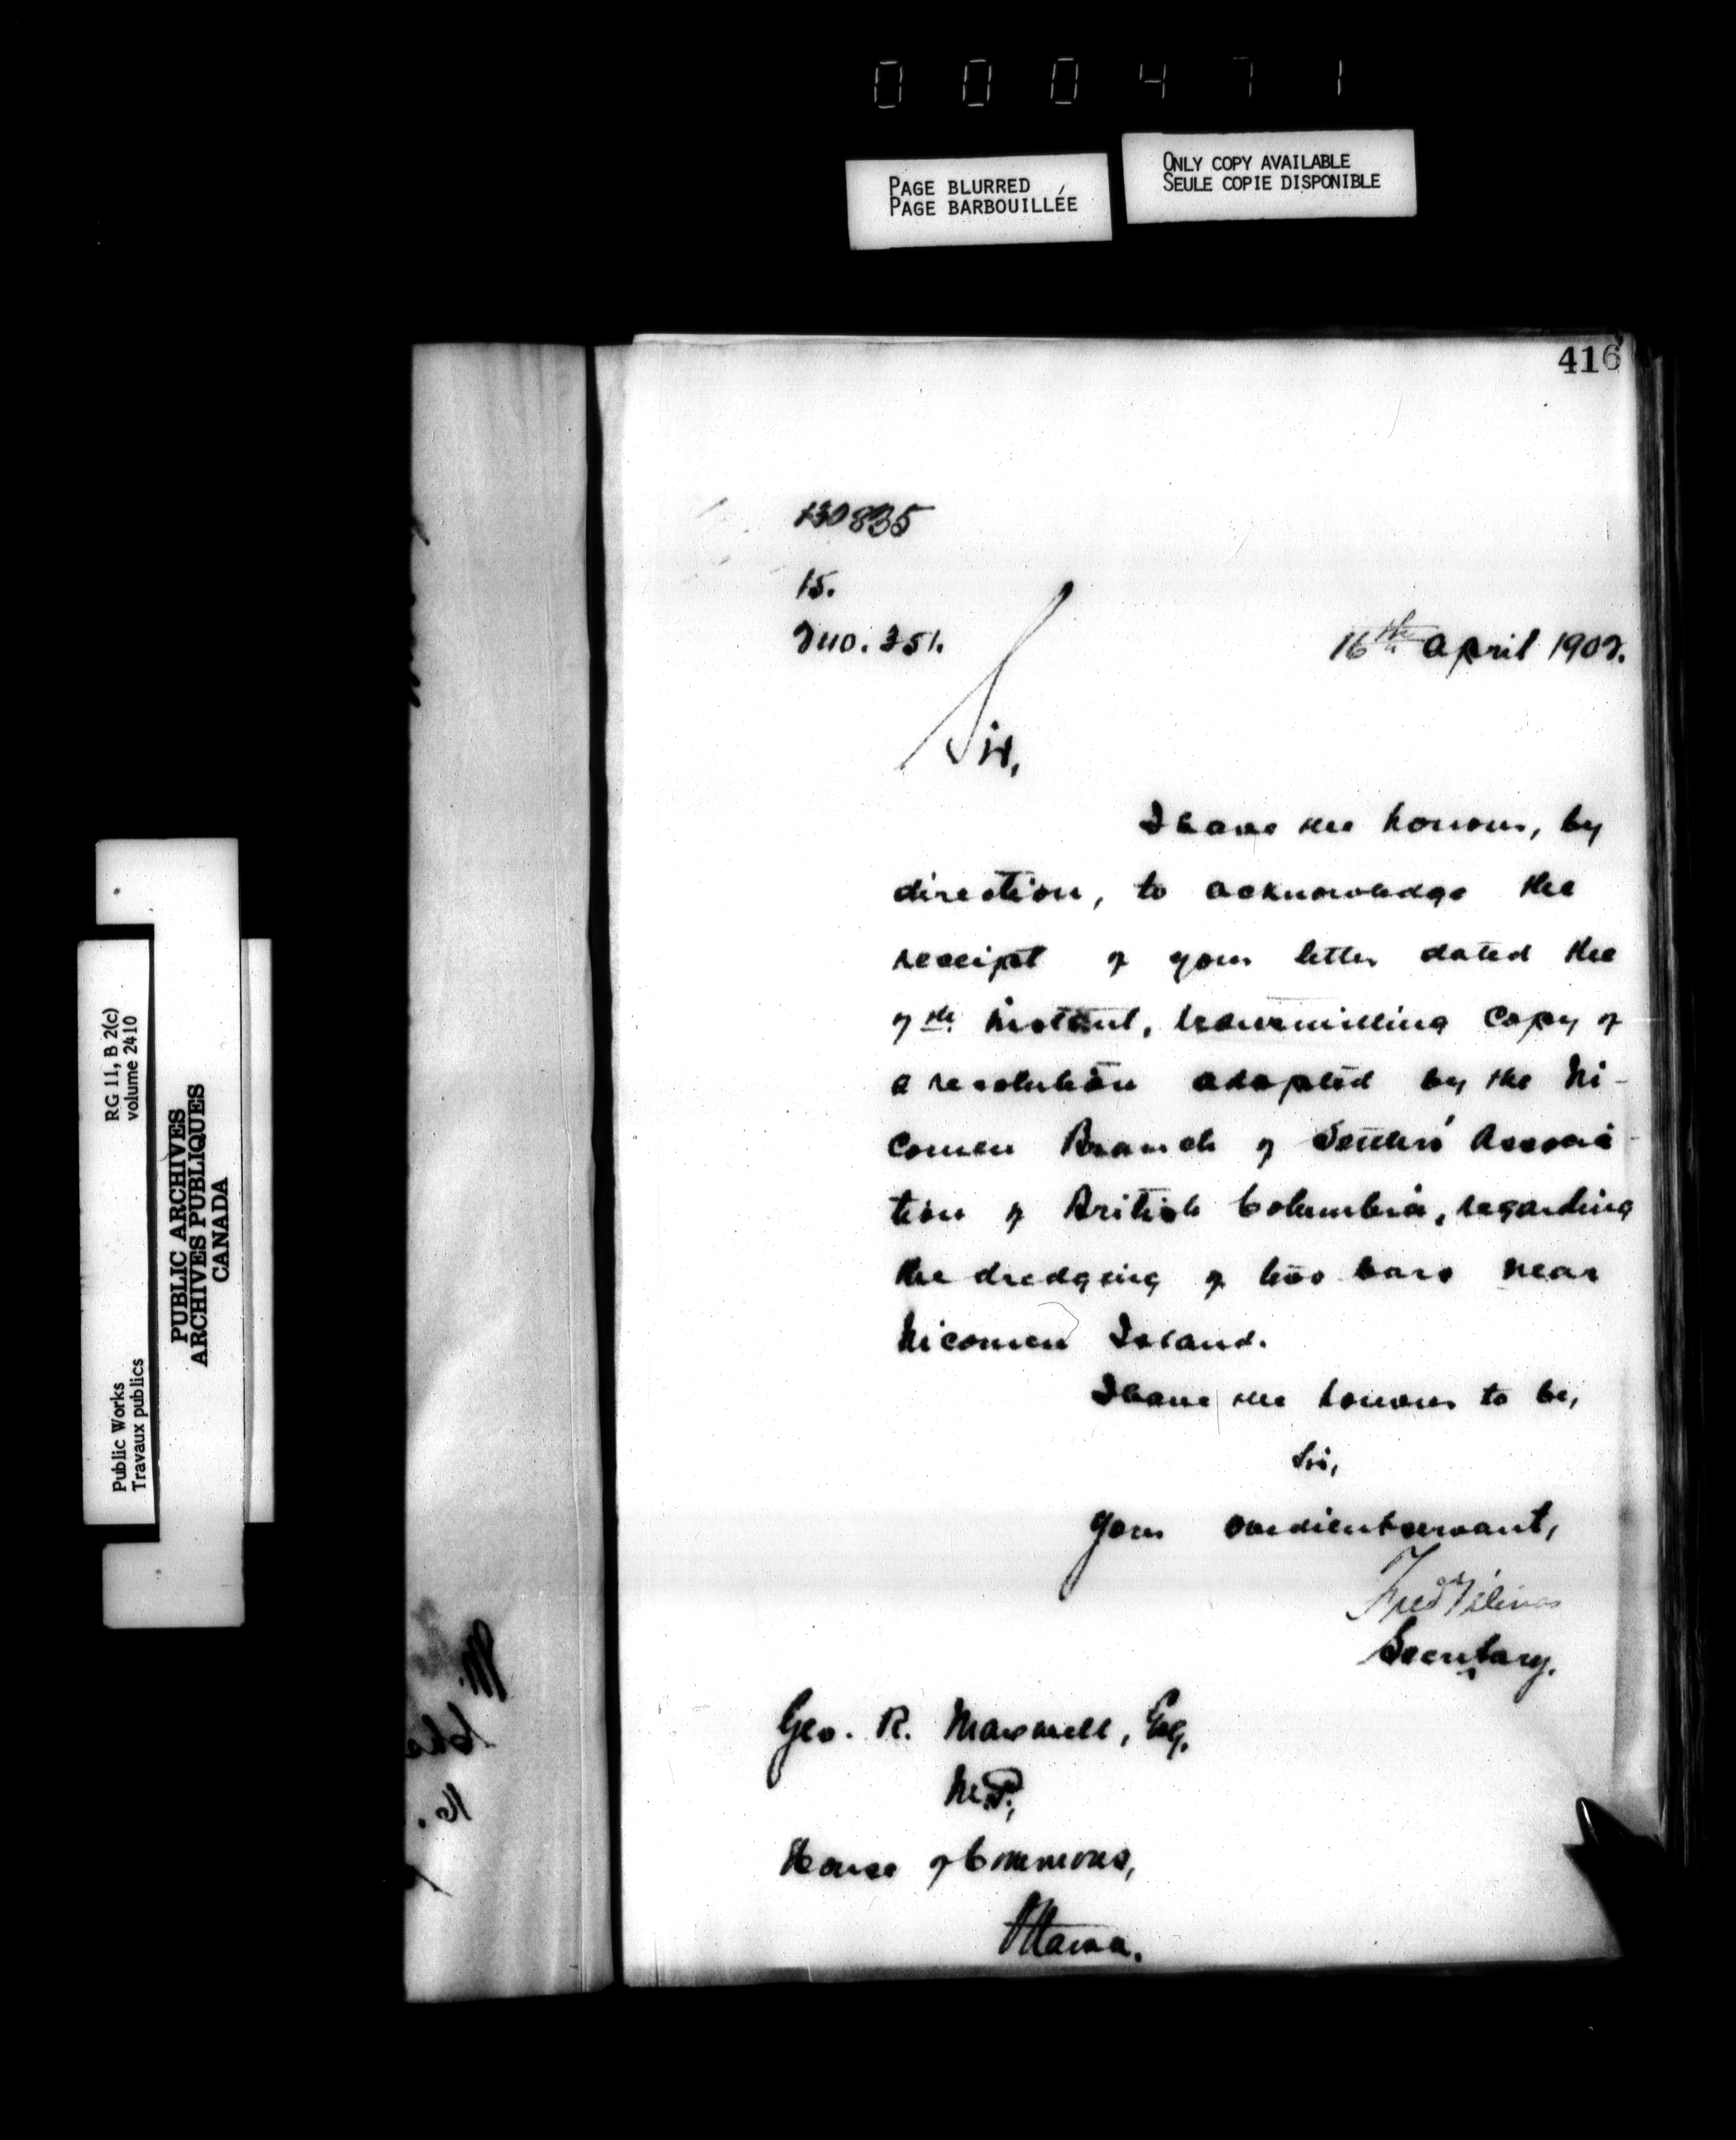 000471
PAGE BLURRED
PAGE BARBOUILLÉE
ONLY COPY AVAILABLE
SEULE COPIE DISPONIBLE
416
130835
15.
16th April 1902.
Sir,
I have the honour, by
direction, to acknowledge the
receipt of your letter dated the
7th instant, transmitting copy of
a resolution adopted by the Ni-
comen Branch of Settlers' Associa-
tion of British Columbia, regarding
the dredging of two bars near
Nicomen Island.
I have the honour to be,
Sir,
Your obedient servant,
Fred Gélinas
Secretary.
Geo. R. Maxwell, Esq.
M.P.,
House of Commons,
Ottawa.
RG 11, B 2(c)
volume 2410
Public Works
Travaux publics
PUBLIC ARCHIVES
ARCHIVES PUBLIQUES
CANADA